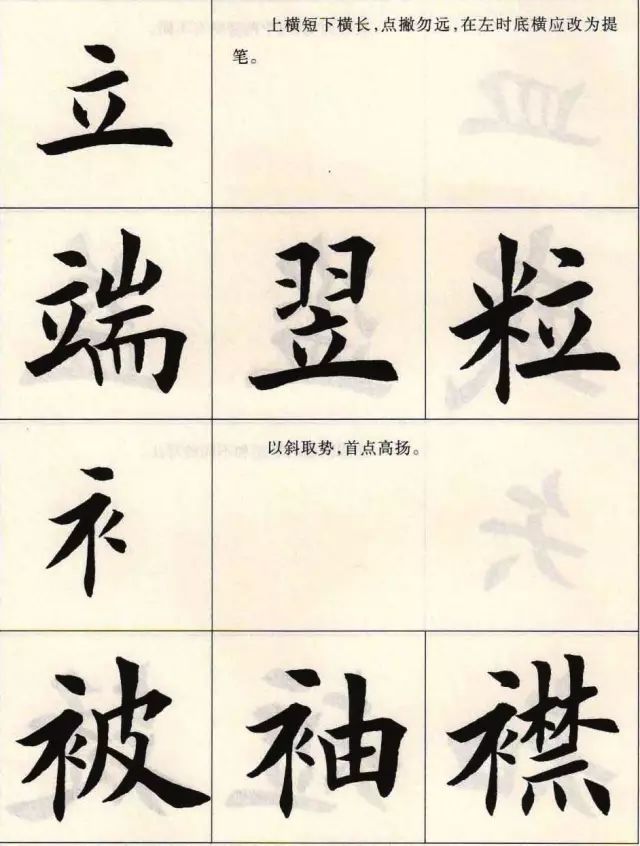 立
上横短下横长，点撇勿远，在左时底横应改为提
笔。
端 翌 粒
衤
以斜取势，首点高扬。
被 袖 襟